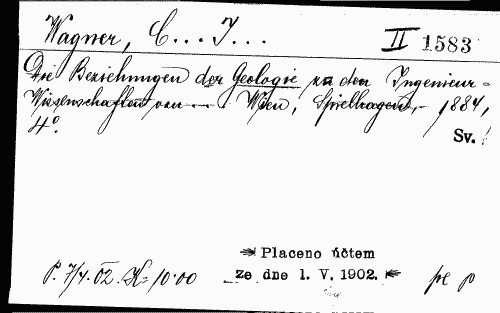 Wagner, C... J...
II 1583
Die Beziehungen der Geologie zu den Ingenieur-
Wissenschaften von --- Wien, Spielhagen, 1884,
4°.
Sv. 1
Placeno účtem
P. 7/4. 02. K= 10·00
ze dne 1. V. 1902.